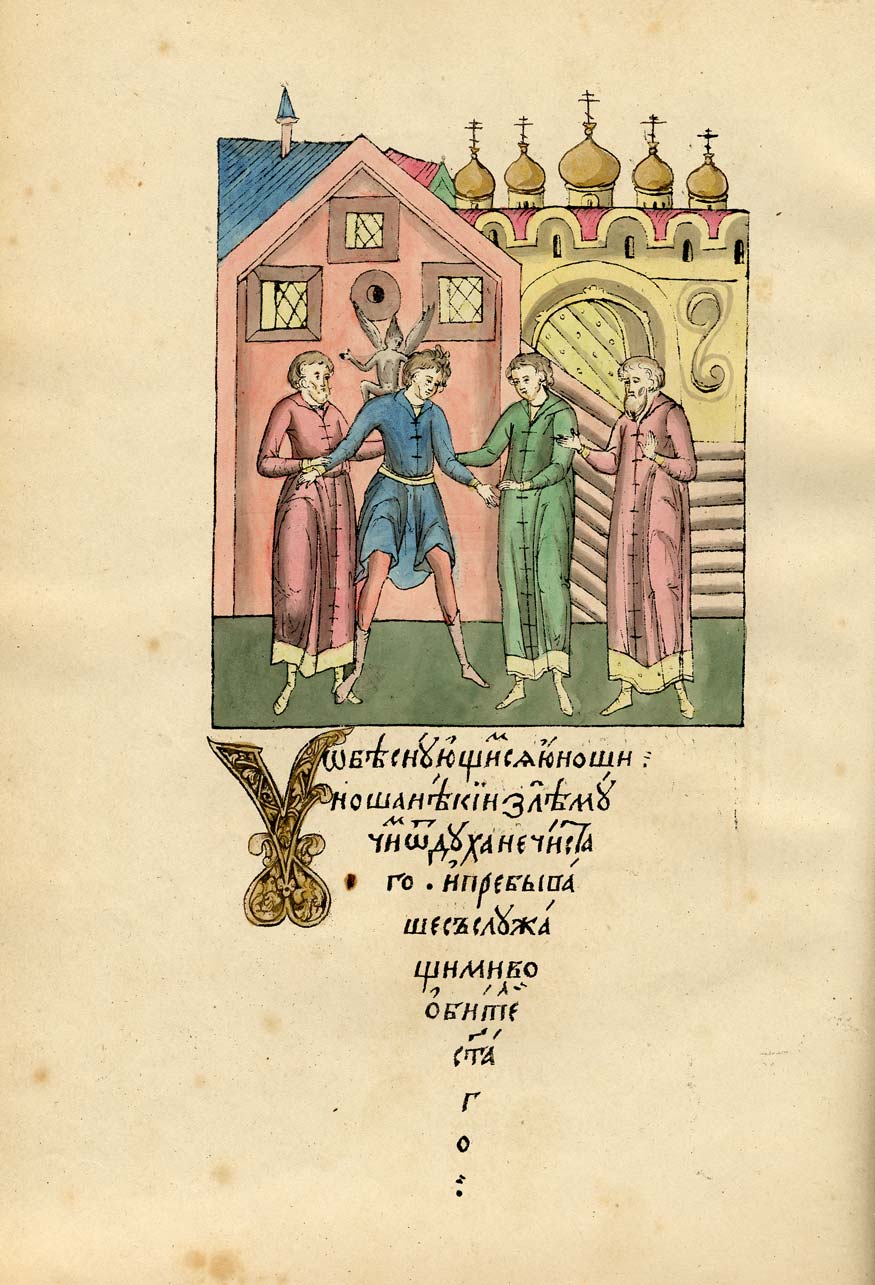 Ѡ бѣснꙋющиⷨсѧ юноши :
Ю҆ноша нѣкїи ѕлѣ мꙋ
чиⷨ ѿ дꙋха нечиста
го . и҆ пребыва
ше съ слꙋжа
щими во
ѻ҆битеⷧ
ста
г
о :